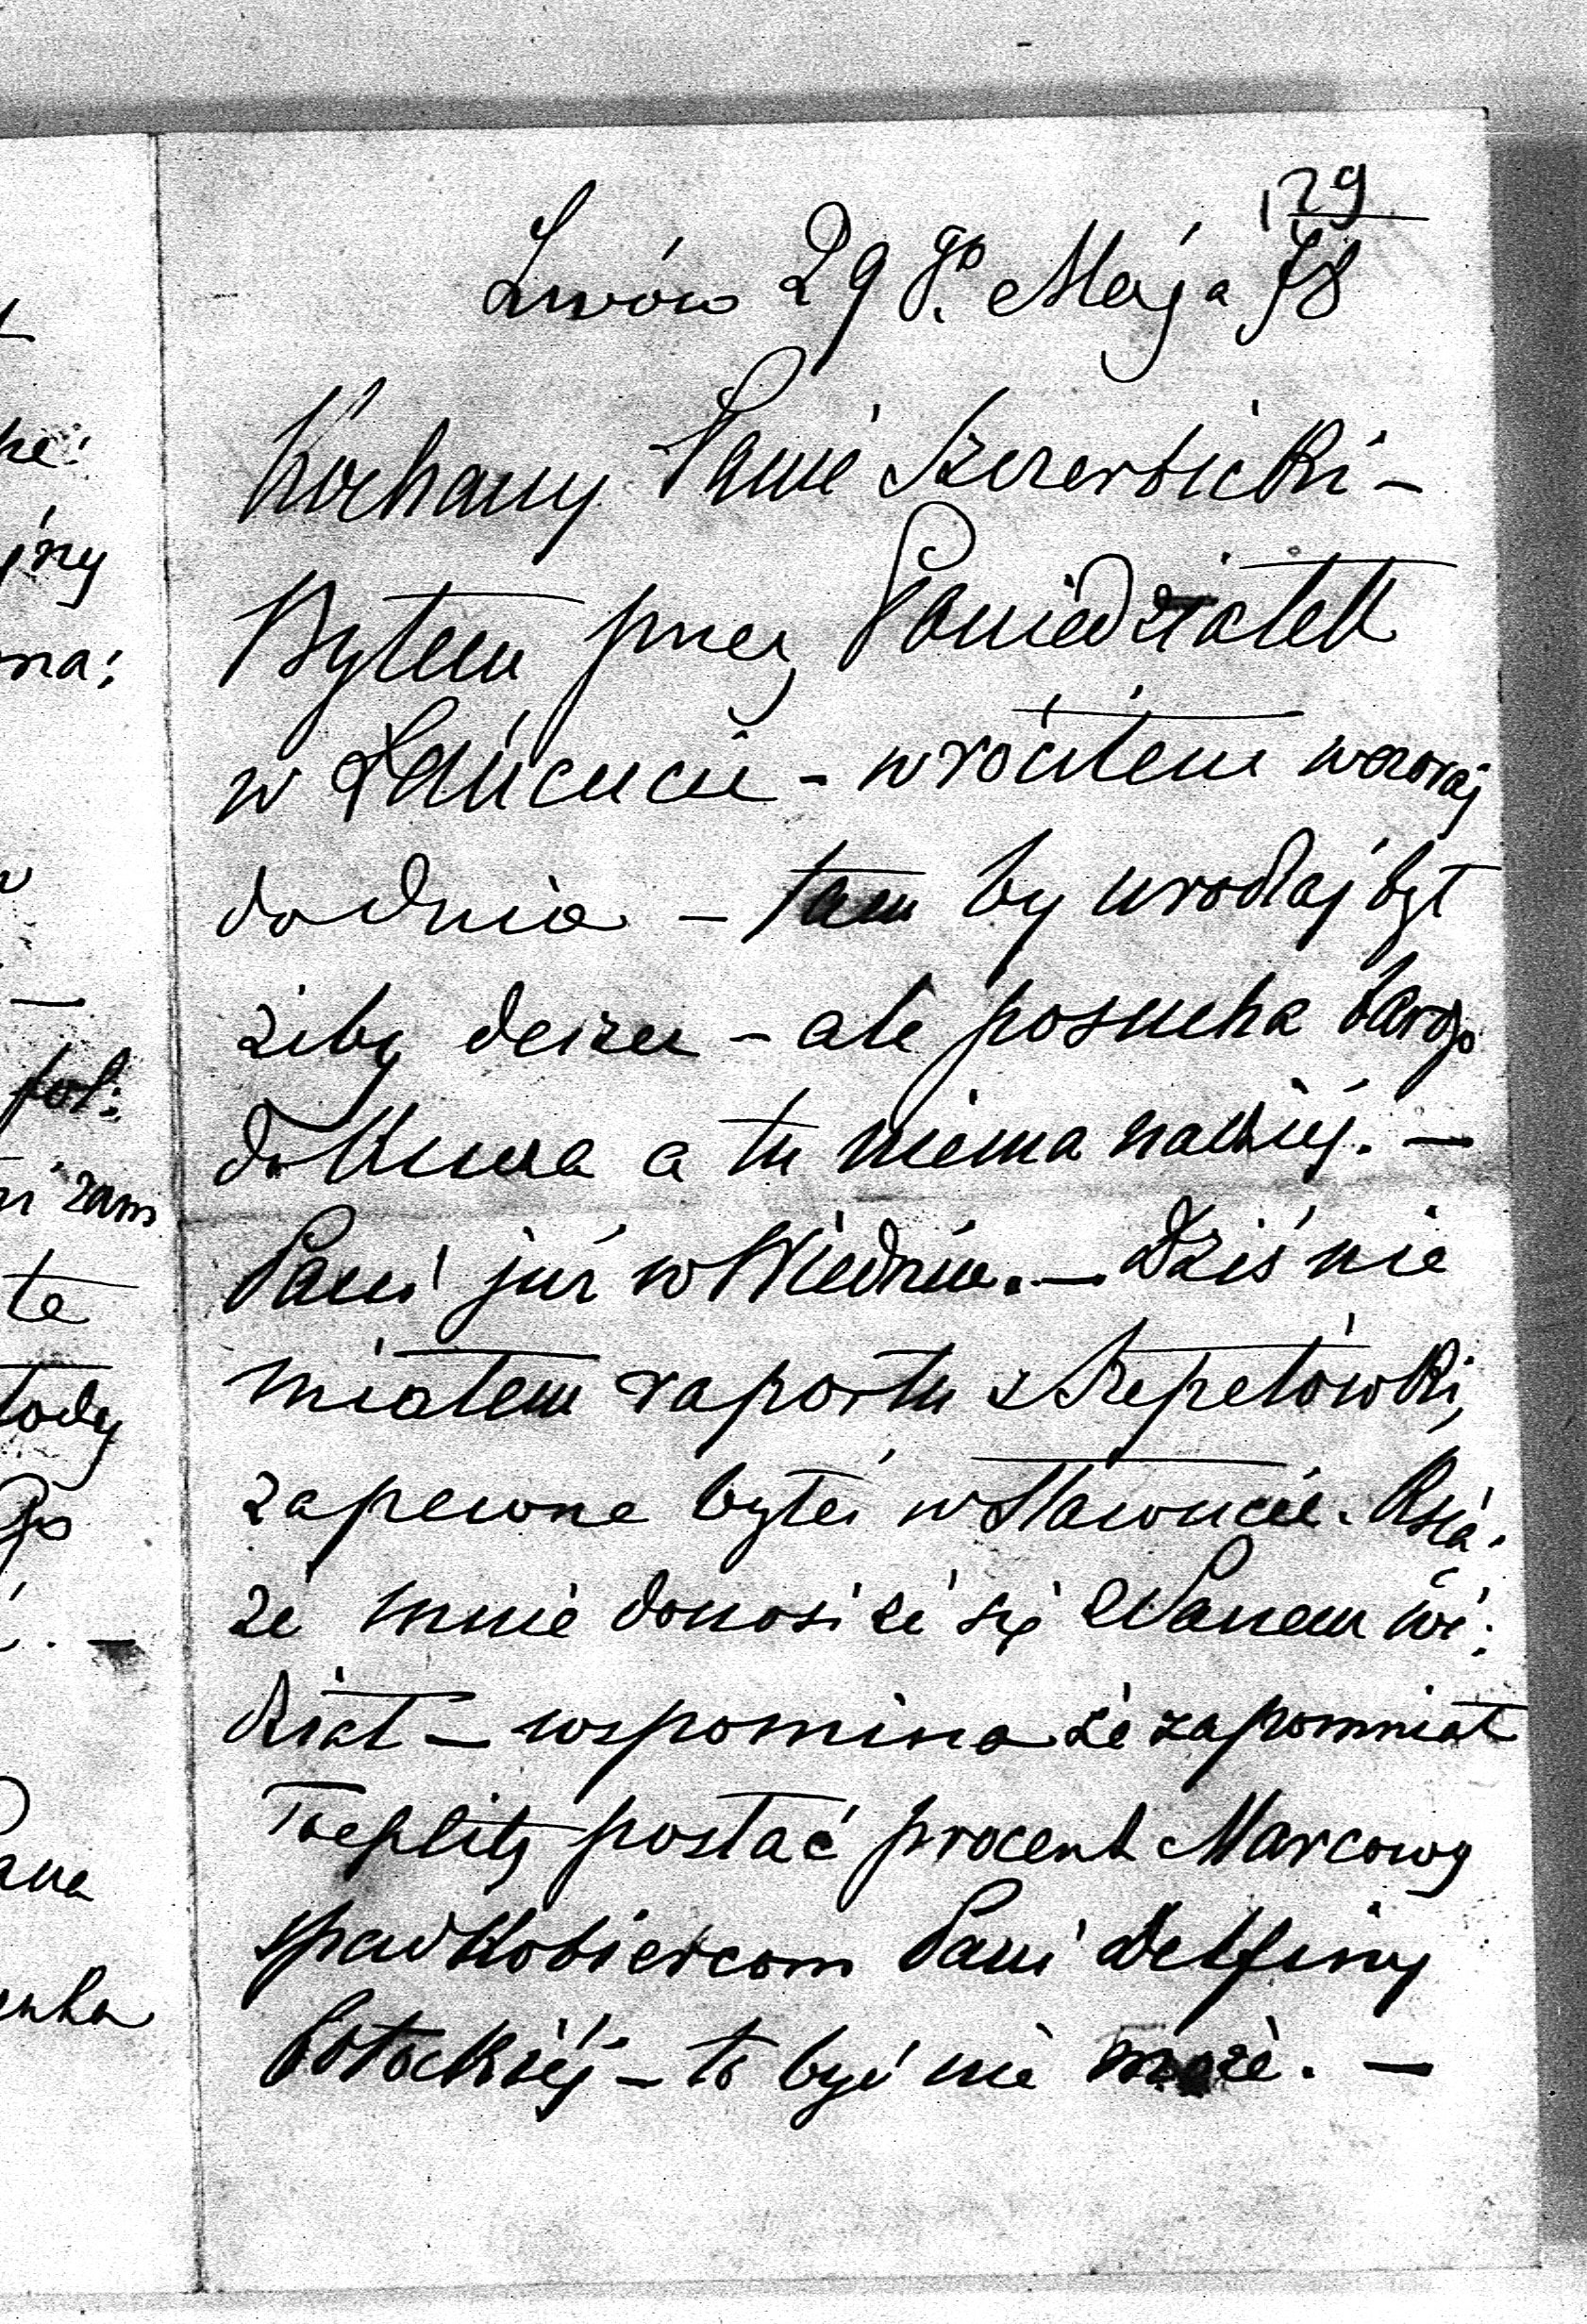 129
Lwów 29go. Maja 78
Kochany Panie Szczerbicki –
Byłem przez Poniedziałek
w Łańcucie – wróciłem wczoraj
do dnia – tam by urodzaj był
żeby deszcz – ale posucha bardzo
dokucza a tu niema nadziej. –
Pani już w Wiedniu. – Dziś nie
miałem raportu z Szepetówki,
zapewne byłeś w Sławucie. Ksią:
że mnie donosi że się z Panem wi:
dział – wspomina że zapomniał
Toeplitz posłać procent Marcowy
spadkobiercom Pani Delfiny
Potockiéj – to być nie może. –